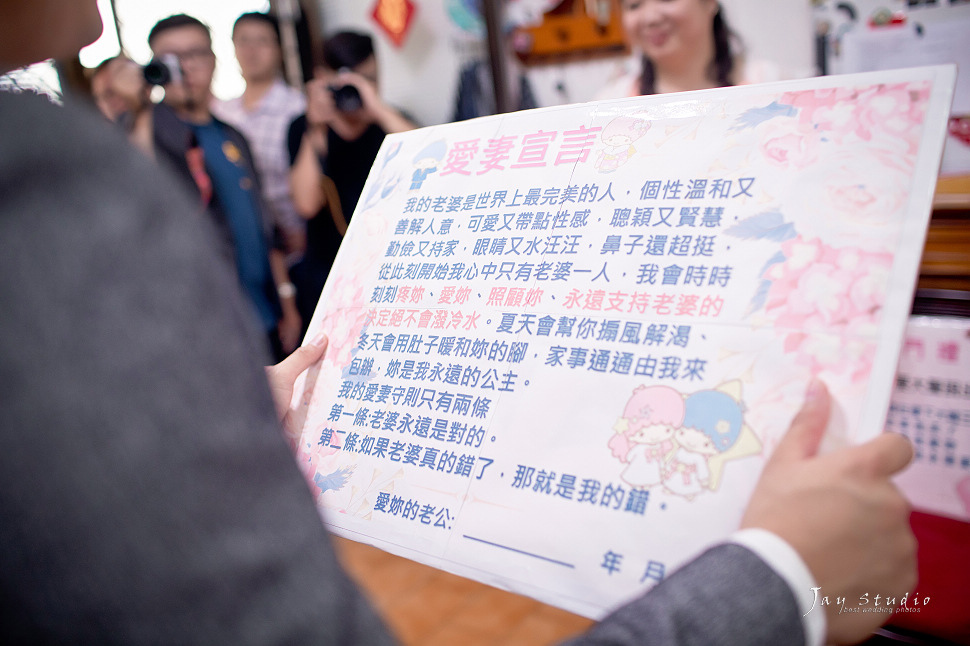 愛妻宣言
我的老婆是世界上最完美的人，個性溫和又
善解人意，可愛又帶點性感，聰穎又賢慧，
勤儉又持家，眼睛又水汪汪，鼻子還超挺，
從此刻開始我心中只有老婆一人，我會時時
刻刻疼妳、愛妳、照顧妳、永遠支持老婆的
決定絕不會潑冷水。夏天會幫你搧風解渴、
冬天會用肚子暖和妳的腳，家事通通由我來
包辦，妳是我永遠的公主。
我的愛妻守則只有兩條
第一條:老婆永遠是對的。
第二條:如果老婆真的錯了，那就是我的錯。
愛妳的老公: 年 月
Jay Studio
best wedding photos